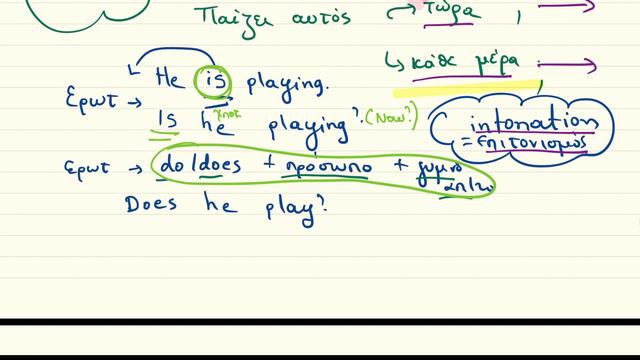 Παίζει αυτός → τώρα ,
↳ κάθε μέρα ,
He is playing.
Ερωτ → Is he playing? (Now?)
intonation
= επιτονισμός
Ερωτ → do/does + πρόσωπο + γυμνό
Does he play?